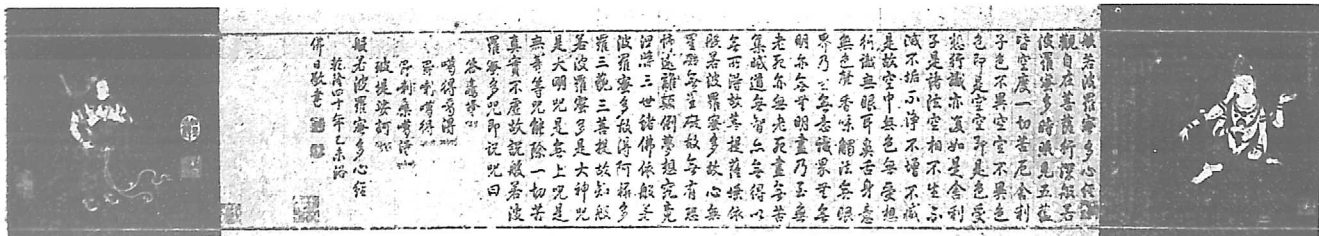 般若波羅蜜多心經
觀自在菩薩行深般若
波羅蜜多時照見五蘊
皆空度一切苦厄舍利
子色不異空空不異色
色即是空空即是色受
想行識亦復如是舍利
子是諸法空相不生不
滅不垢不淨不增不減
是故空中無色無受想
行識無眼耳鼻舌身意
無色聲香味觸法無眼
界乃至無意識界無無
明亦無無明盡乃至無
老死亦無老死盡無苦
集滅道無智亦無得以
無所得故菩提薩埵依
般若波羅蜜多故心無
罣礙無罣礙故無有恐
怖遠離顛倒夢想究竟
涅槃三世諸佛依般若
波羅蜜多故得阿耨多
羅三藐三菩提故知般
若波羅蜜多是大神咒
是大明咒是無上咒是
無等等咒能除一切苦
真實不虛故說般若波
羅蜜多咒即說咒曰
噶得噶得
噶得
桑噶得
娑訶
般若波羅蜜多心經
乾隆四十年乙未浴
佛日敬書